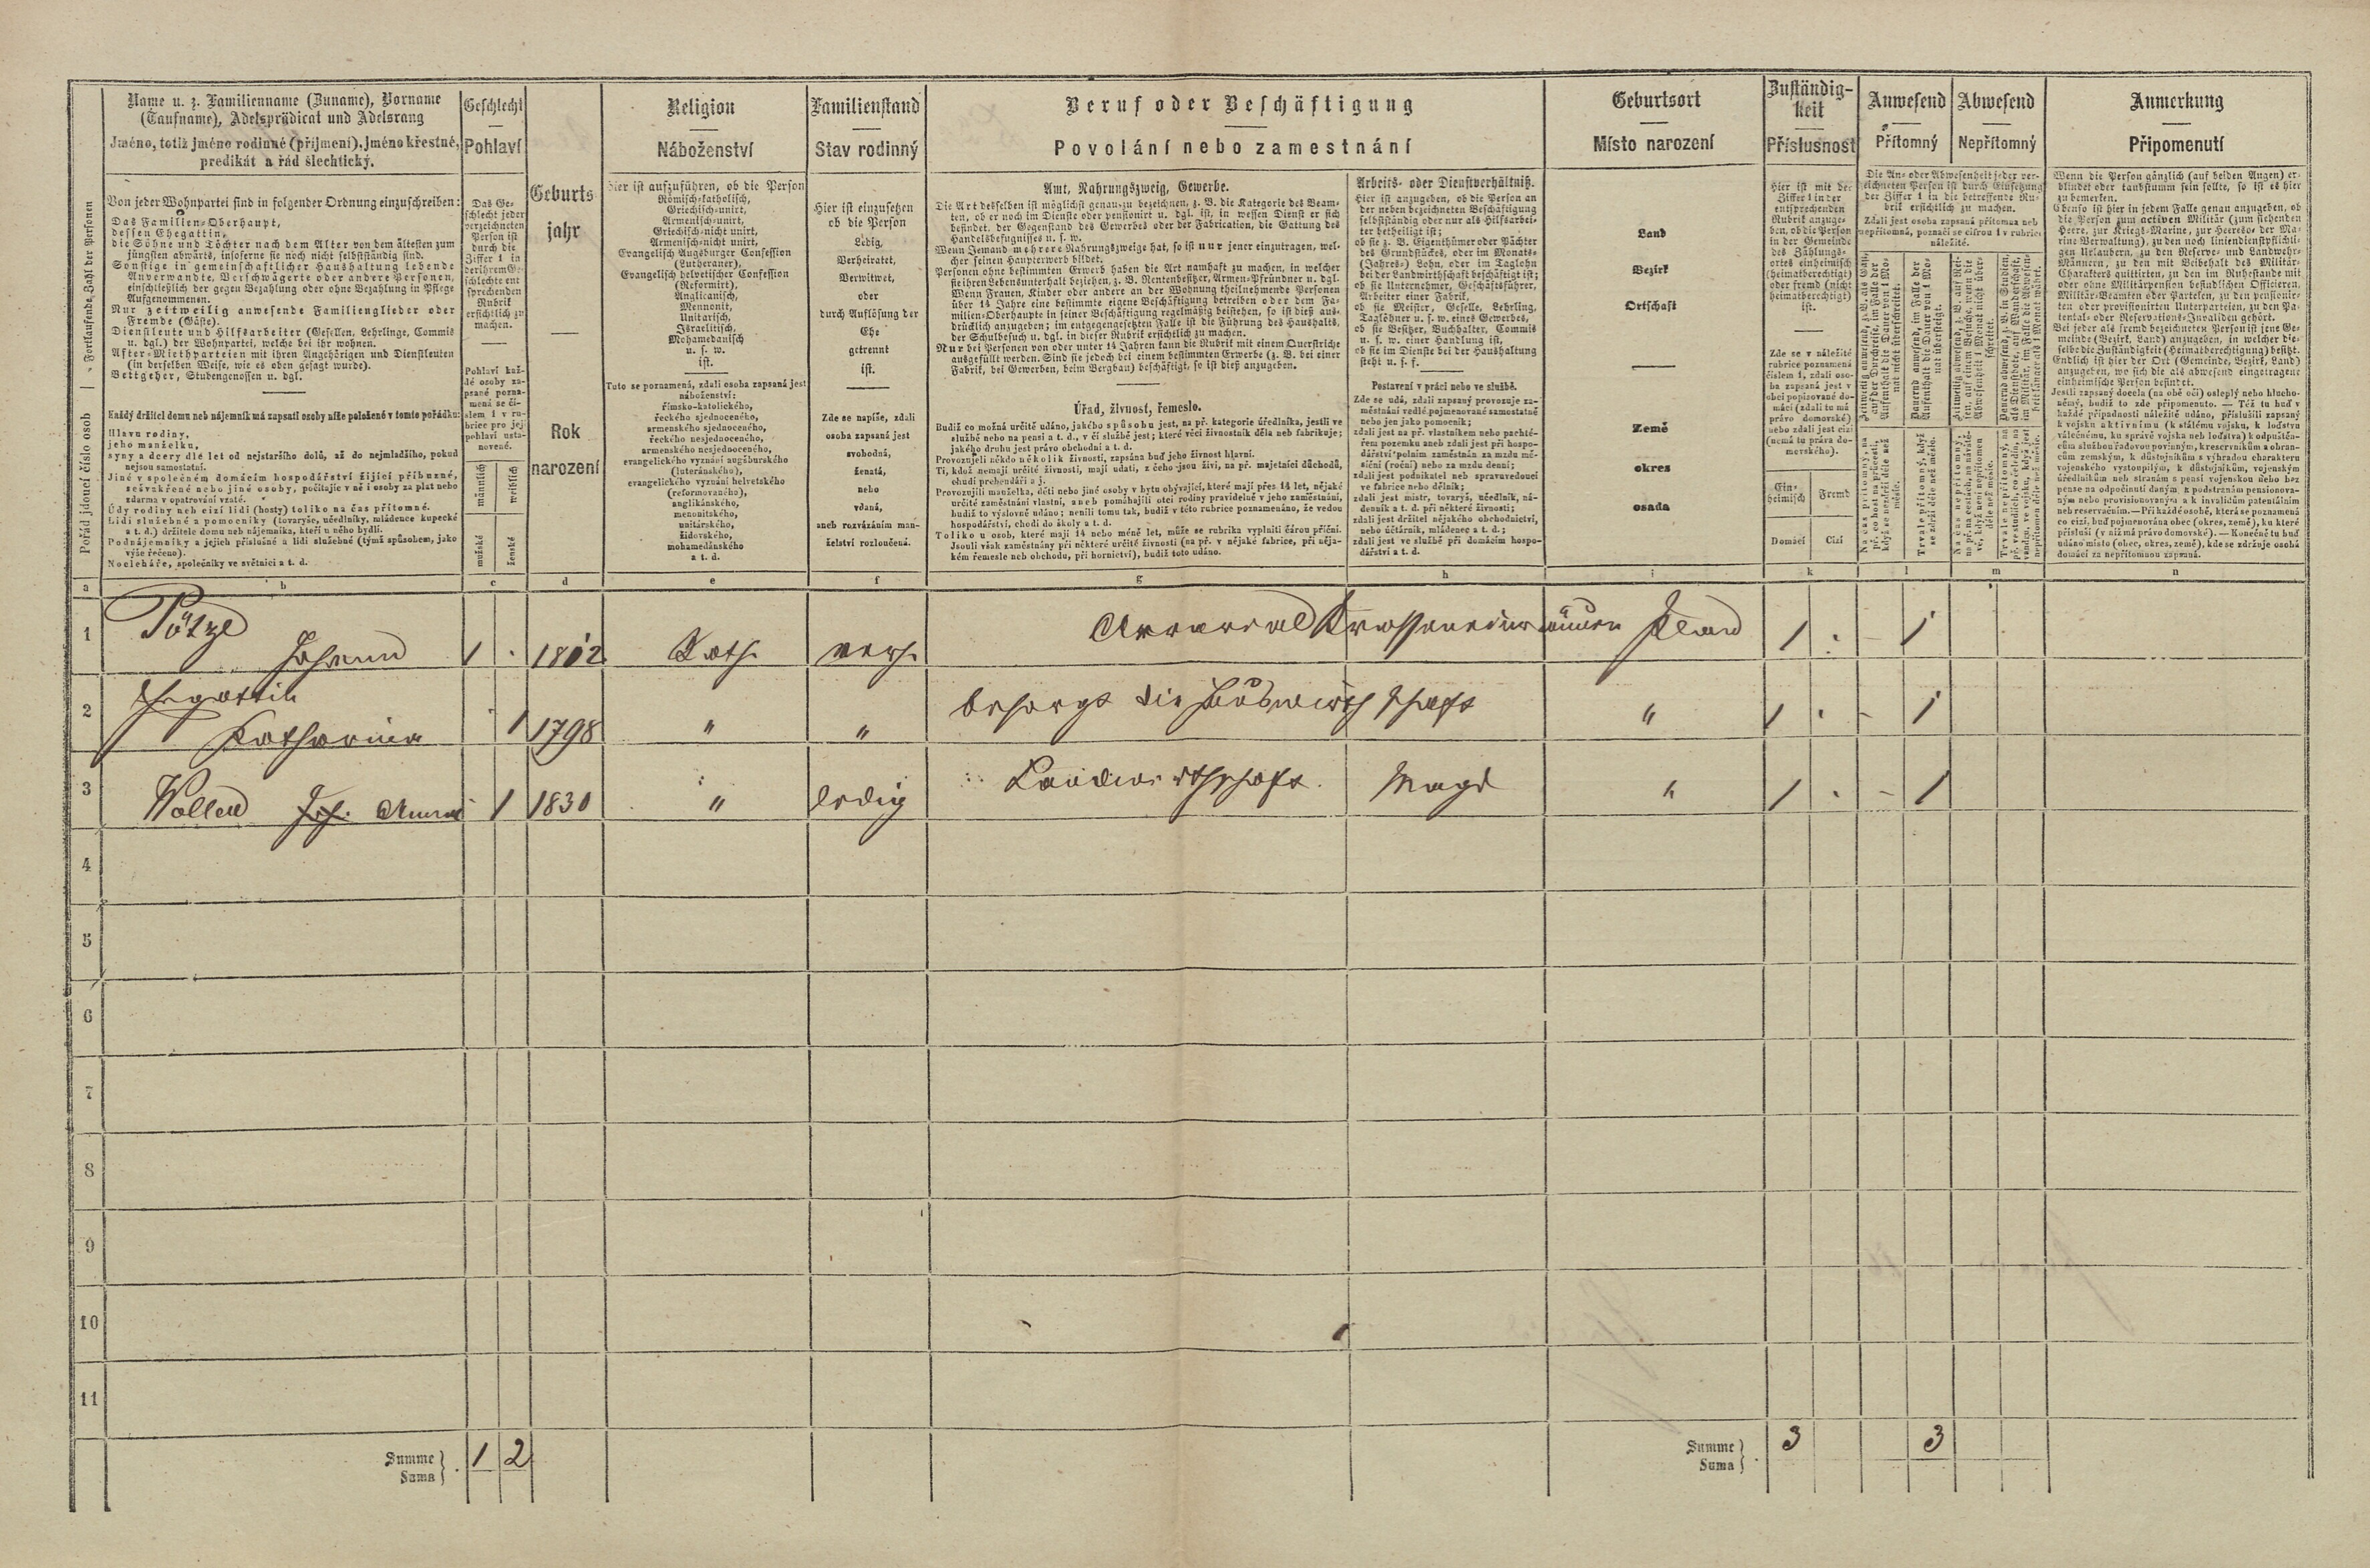 Name u. z. Familienname (Zuname), Vorname
(Taufname), Adelsprädicat und Adelsrang
Jméno, totiž jméno rodinné (příjmení), jméno křestné,
predikát a řád šlechtický.
Geschlecht
Pohlaví
Geburts
jahr
Rok
narození
Religion
Náboženství
Familienstand
Stav rodinný
Beruf oder Beschäftigung
Povolání nebo zamestnání
Geburtsort
Místo narození
Zuständig-
keit
Příslusnost
Anwesend
Přítomný
Abwesend
Nepřítomný
Anmerkung
Připomenutí
Fortlaufende Zahl der Personen
Pořád jdoucí číslo osob
Von jeder Wohnpartei sind in folgender Ordnung einzuschreiben:
Das Familien-Oberhaupt,
dessen Ehegattin,
die Söhne und Töchter nach dem Alter von dem ältesten zum
jüngsten abwärts, insoferne sie noch nicht selbstständig sind.
Sonstige in gemeinschaftlicher Haushaltung lebende
Anverwandte, Verschwägerte oder andere Personen,
einschließlich der gegen Bezahlung oder ohne Bezahlung in Pflege
Aufgenommenen.
Nur zeitweilig anwesende Familienglieder oder
Fremde (Gäste).
Dienstleute und Hilfsarbeiter (Gesellen, Lehrlinge, Commis
u. dgl.) der Wohnpartei, welche bei ihr wohnen.
After-Miethparteien mit ihren Angehörigen und Dienstleuten
(in derselben Weise, wie es oben gesagt wurde).
Bettgeher, Stubengenossen u. dgl.
Každý držitel domu neb nájemník má zapsati osoby níže položené v tomto pořádku:
Hlavu rodiny,
jeho manželku,
syny a dcery dlé let od nejstaršího dolů, až do nejmladšího, pokud
nejsou samostatní.
Jiné v společném domácím hospodářství žijící příbuzné,
sešvakřené nebo jiné osoby, počítajíc v ně i osoby za plat nebo
zdarma v opatrování vzaté.
Údy rodiny neb cizí lidi (hosty) toliko na čas přítomné.
Lidi služebné a pomocníky (tovaryše, učedlníky, mládence kupecké
a t. d.) držitele domu neb nájemníka, kteří u něho bydlí.
Podnájemníky a jejich příslušné a lidi služebné (týmž spůsobem, jako
výše řečeno).
Nocleháře, společníky ve světnici a t. d.
Das Ge-
schlecht jeder
verzeichneten
Person ist
durch die
Ziffer 1 in
der ihrem Ge-
schlechte ent
sprechenden
Rubrik
ersichtlich zu
machen.
Pohlaví kaž-
dé osoby za-
psané pozna-
mená se čí-
slem 1 v ru-
brice pro jej
pohlaví usta-
novené.
männlich
weiblich
mužské
ženské
Hier ist aufzuführen, ob die Person
Römisch-katholisch,
Griechisch-unirt,
Armenisch-unirt,
Griechisch-nicht unirt,
Armenisch-nicht unirt,
Evangelisch Augsburger Confession
(Lutheraner),
Evangelisch helvetischer Confession
(Reformirt),
Anglicanisch,
Mennonit,
Unitarisch,
Israelitisch,
Mohamedanisch
u. s. w.
ist.
Tuto se poznamená, zdali osoba zapsaná jest
náboženství:
římsko-katolického,
řeckého sjednoceného,
armenského sjednoceného,
řeckého nesjednoceného,
armenského nesjednoceného,
evangelického vyznání augšburského
(luteránského),
evangelického vyznání helvetského
(reformovaného),
anglikánského,
menonitského,
unitárského,
židovského,
mohamedánského
a t. d.
Hier ist einzusetzen
ob die Person
Ledig,
Verheiratet,
Verwitwet,
oder
durch Auflösung der
Ehe
getrennt
ist.
Zde se napíše, zdali
osoba zapsaná jest
svobodná,
ženatá,
nebo
vdaná,
aneb rozvázáním man-
želství rozloučená.
Amt, Nahrungszweig, Gewerbe.
Die Art desselben ist möglichst genau zu bezeichnen, z. B. die Kategorie des Beam-
ten, ob er noch im Dienste oder pensionirt u. dgl. ist, in wessen Dienst er sich
befindet, der Gegenstand des Gewerbes oder der Fabrication, die Gattung des
Handelsbefugnisses u. s. w.
Wenn Jemand mehrere Nahrungszweige hat, so ist nur jener einzutragen, wel-
cher seinen Haupterwerb bildet.
Personen ohne bestimmten Erwerb haben die Art namhaft zu machen, in welcher
sie ihren Lebensunterhalt beziehen, z. B. Rentenbesitzer, Armen-Pfründner u. dgl.
Wenn Frauen, Kinder oder andere an der Wohnung theilnehmende Personen
über 14 Jahre eine bestimmte eigene Beschäftigung betreiben oder dem Fa-
milien-Oberhaupte in seiner Beschäftigung regelmäßig beistehen, so ist dieß aus-
drücklich anzugeben; im entgegengesetzten Falle ist die Führung des Haushalts,
der Schulbesuch u. dgl. in dieser Rubrik ersichtlich zu machen.
Nur bei Personen von oder unter 14 Jahren kann die Rubrik mit einem Querstriche
ausgefüllt werden. Sind sie jedoch bei einem bestimmten Erwerbe (z. B. bei einer
Fabrik, bei Gewerben, beim Bergbau) beschäftigt, so ist dieß anzugeben.
Úřad, živnost, řemeslo.
Budiž co možná určitě udáno, jakého spůsobu jest, na př. kategorie úředlníka, jestli ve
službě nebo na pensi a t. d., v čí službě jest; které věci živnostník dělá neb fabrikuje;
jakého druhu jest právo obchodní a t. d.
Provozujeli někdo několik živností, zapsána buď jeho živnost hlavní.
Ti, kdož nemají určité živnosti, mají udati, z čeho jsou živi, na př. majetníci důchodů,
chudí prebendáři a j.
Provozujíli manželka, děti nebo jiné osoby v bytu obývající, které mají přes 14 let, nějaké
určité zaměstnání vlastní, aneb pomáhajíli otci rodiny pravidelně v jeho zaměstnání,
budiž to výslovně udáno; neníli tomu tak, budiž v této rubrice poznamenáno, že vedou
hospodářství, chodí do školy a t. d.
Toliko u osob, které mají 14 nebo méně let, může se rubrika vyplniti čárou příční.
Jsouli však zaměstnány při některé určité živnosti (na př. v nějaké fabrice, při něja-
kém řemesle neb obchodu, při hornictví), budiž toto udáno.
Arbeits- oder Dienstverhältniß.
Hier ist anzugeben, ob die Person an
der neben bezeichneten Beschäftigung
selbstständig oder nur als Hilfsarbei-
ter betheiligt ist;
ob sie z. B. Eigenthümer oder Pächter
des Grundstückes, oder im Monats-
(Jahres-) Lohn, oder im Taglohn
bei der Landwirthschaft beschäftigt ist;
ob sie Unternehmer, Geschäftsführer,
Arbeiter einer Fabrik,
ob sie Meister, Geselle, Lehrling,
Taglöhner u. s. w. eines Gewerbes,
ob sie Besitzer, Buchhalter, Commis
u. s. w. einer Handlung ist,
ob sie im Dienste bei der Haushaltung
steht u. s. f.
Postavení v práci nebo ve službě.
Zde se udá, zdali zapsaný provozuje za-
městnání vedlé pojmenované samostatně
nebo jen jako pomocník;
zdali jest na př. vlastníkem nebo pachté-
řem pozemku aneb zdali jest při hospo-
dářství polním zaměstnán za mzdu mě-
síční (roční) nebo za mzdu denní;
zdali jest podnikatel neb spravuvedoucí
ve fabrice nebo dělník;
zdali jest mistr, tovaryš, učedlník, ná-
denník a t. d. při některé živnosti;
zdali jest držitel nějakého obchodnictví,
nebo účtárník, mládenec a t. d.;
zdali jest ve službě při domácím hospo-
dářství a t. d.
Land
Bezirk
Ortschaft
Země
okres
osada
Hier ist mit der
Ziffer 1 in der
entsprechenden
Rubrik anzuge-
ben, ob die Person
in der Gemeinde
des Zählungs-
ortes einheimisch
(heimatberechtigt)
oder fremd (nicht
heimatberechtigt)
ist.
Zde se v náležité
rubrice poznamená
číslem 1, zdali oso-
ba zapsaná jest v
obci popisované do-
mácí (zdali tu má
právo domovské)
nebo zdali jest cizí
(nemá tu práva do-
movského).
Ein-
heimisch
Fremd
Domácí
Cizí
Die An- oder Abwesenheit jeder ver-
zeichneten Person ist durch Einsetzung
der Ziffer 1 in die betreffende Ru-
brik ersichtlich zu machen.
Zdali jest osoba zapsaná přítomna neb
nepřítomná, poznačí se cifrou 1 v rubrice
náležité.
Zeitweilig anwesend, z. B. als Gast,
auf der Durchreise, im Falle der
Aufenthalt die Dauer von 1 Mo-
nat nicht überschreitet.
Dauernd anwesend, im Falle der
Aufenthalt die Dauer von 1 Mo-
nat übersteigt.
Zeitweilig abwesend, z. B. auf Rei-
sen, auf einem Besuche, wenn die
Abwesenheit 1 Monat nicht über-
schreitet.
Dauernd abwesend, z. B. in Studien,
als Dienstbote, auf Wanderschaft,
im Militär, im Falle die Abwesen-
heit länger als 1 Monat währt.
Na čas přítomný, na
př. co host na průcestí,
když se nezdrží déle než
měsíc.
Trvale přítomný, když
se zdrží déle než měsíc.
Na čas nepřítomný,
na př. na cestách, na návště-
vě, když není nepřítomen
déle než měsíc.
Trvale nepřítomný, na
př. ve studiích, co čeledín, na
vandru, ve vojsku, když jest
nepřítomen déle než měsíc.
Wenn die Person gänzlich (auf beiden Augen) er-
blindet oder taubstumm sein sollte, so ist es hier
zu bemerken.
Ebenso ist hier in jedem Falle genau anzugeben, ob
die Person zum activen Militär (zum stehenden
Heere, zur Kriegs-Marine, zur Heeres- oder Ma-
rine Verwaltung), zu den noch liniendienstpflichti-
gen Urlaubern, zu den Reserve- und Landwehr-
Männern, zu den mit Beibehalt des Militär-
Charakters quittirten, zu den im Ruhestande mit
oder ohne Militärpension befindlichen Officieren,
Militär-Beamten oder Parteien, zu den pensionir-
ten oder provisionirten Unterparteien, zu den Pa-
tental- oder Reservations-Invaliden gehört.
Bei jeder als fremd bezeichneten Person ist jene Ge-
meinde (Bezirk, Land) anzugeben, in welcher die-
selbe die Zuständigkeit (Heimatberechtigung) besitzt.
Endlich ist hier der Ort (Gemeinde, Bezirk, Land)
anzugeben, wo sich die als abwesend eingetragene
einheimische Person befindet.
Jestli zapsaný docela (na obě oči) osleplý nebo hlucho-
němý, budiž to zde připomenuto. — Též tu buď v
každé případnosti náležitě udáno, přísluší​li zapsaný
k vojsku aktivnímu (k stálému vojsku, k loďstvu
válečnému, ku správě vojska neb loďstva) k odpuštěn-
cům službou řadovou povinným, k reservníkům a obran-
cům zemským, k důstojníkům s výhradou charakteru
vojenského vystouplým, k důstojníkům, vojenským
úředlníkům neb stranám s pensí vojenskou nebo bez
pense na odpočinutí daným, k podstranám pensionova-
ným nebo provisionovaným a k invalidům patentálním
neb reservačním. — Při každé osobě, která se poznamená
co cizí, buď pojmenována obec (okres, země), ku které
přísluší (v níž má právo domovské). — Konečně tu buď
udáno místo (obec, okres, země), kde se zdržuje osoba
domácí za nepřítomnou zapsaná.
a b c d e f g h i k l m n
1 Pötzl
Johann 1 . 1802 Kath. verh. Plan 1 . - 1
2 Ehegattin
Katharina 1 1798 " " besorgt die Hauswirthschaft " 1 . - 1
3 Wollend Jos. Anna 1 1830 " ledig Landwirthschaft. Magd " 1 . - 1
4
5
6
7
8
9
10
11
Summe
Suma 1 2
Summe
Suma 3 3